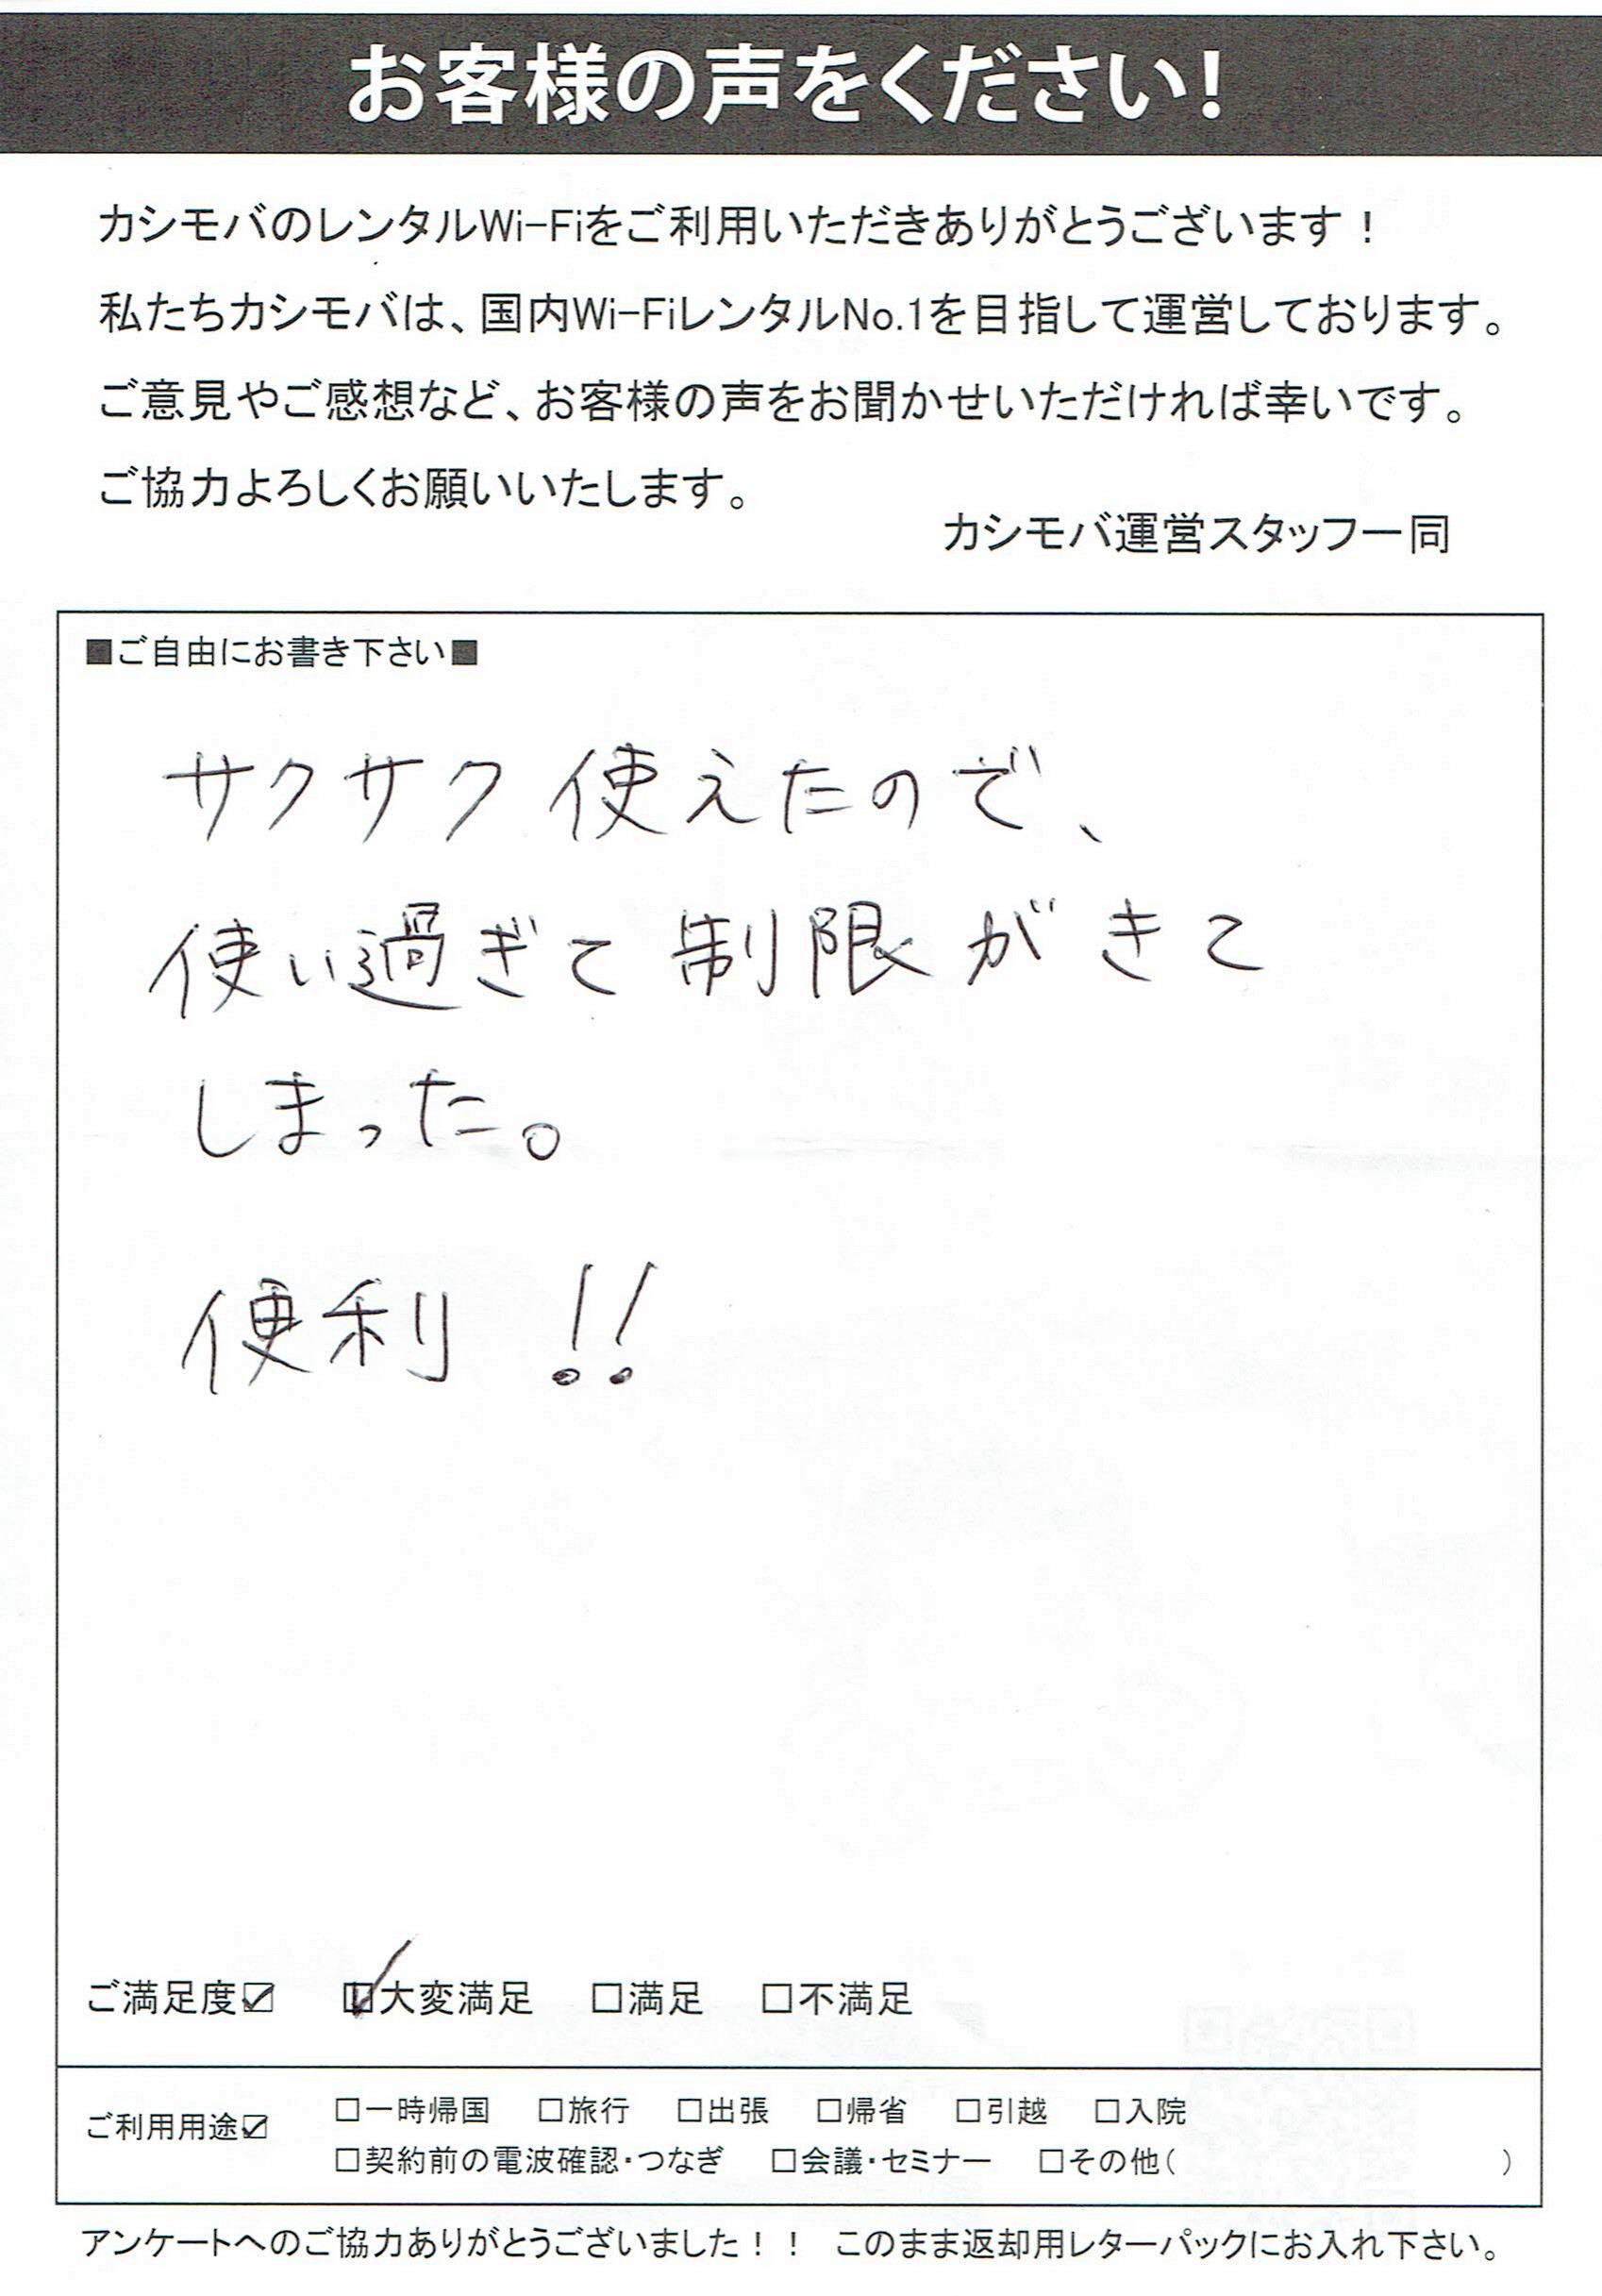 お客様の声をください！
カシモバのレンタルWi-Fiをご利用いただきありがとうございます！
私たちカシモバは、国内Wi-FiレンタルNo.1を目指して運営しております。
ご意見やご感想など、お客様の声をお聞かせいただければ幸いです。
ご協力よろしくお願いいたします。
カシモバ運営スタッフ一同
■ご自由にお書き下さい■
サクサク使えたので、
使い過ぎて制限がきて
しまった。
便利!!
ご満足度☑ ☑大変満足 □満足 □不満足
ご利用用途☑ □一時帰国 □旅行 □出張 □帰省 □引越 □入院
□契約前の電波確認・つなぎ □会議・セミナー □その他( )
アンケートへのご協力ありがとうございました！！ このまま返却用レターパックにお入れ下さい。